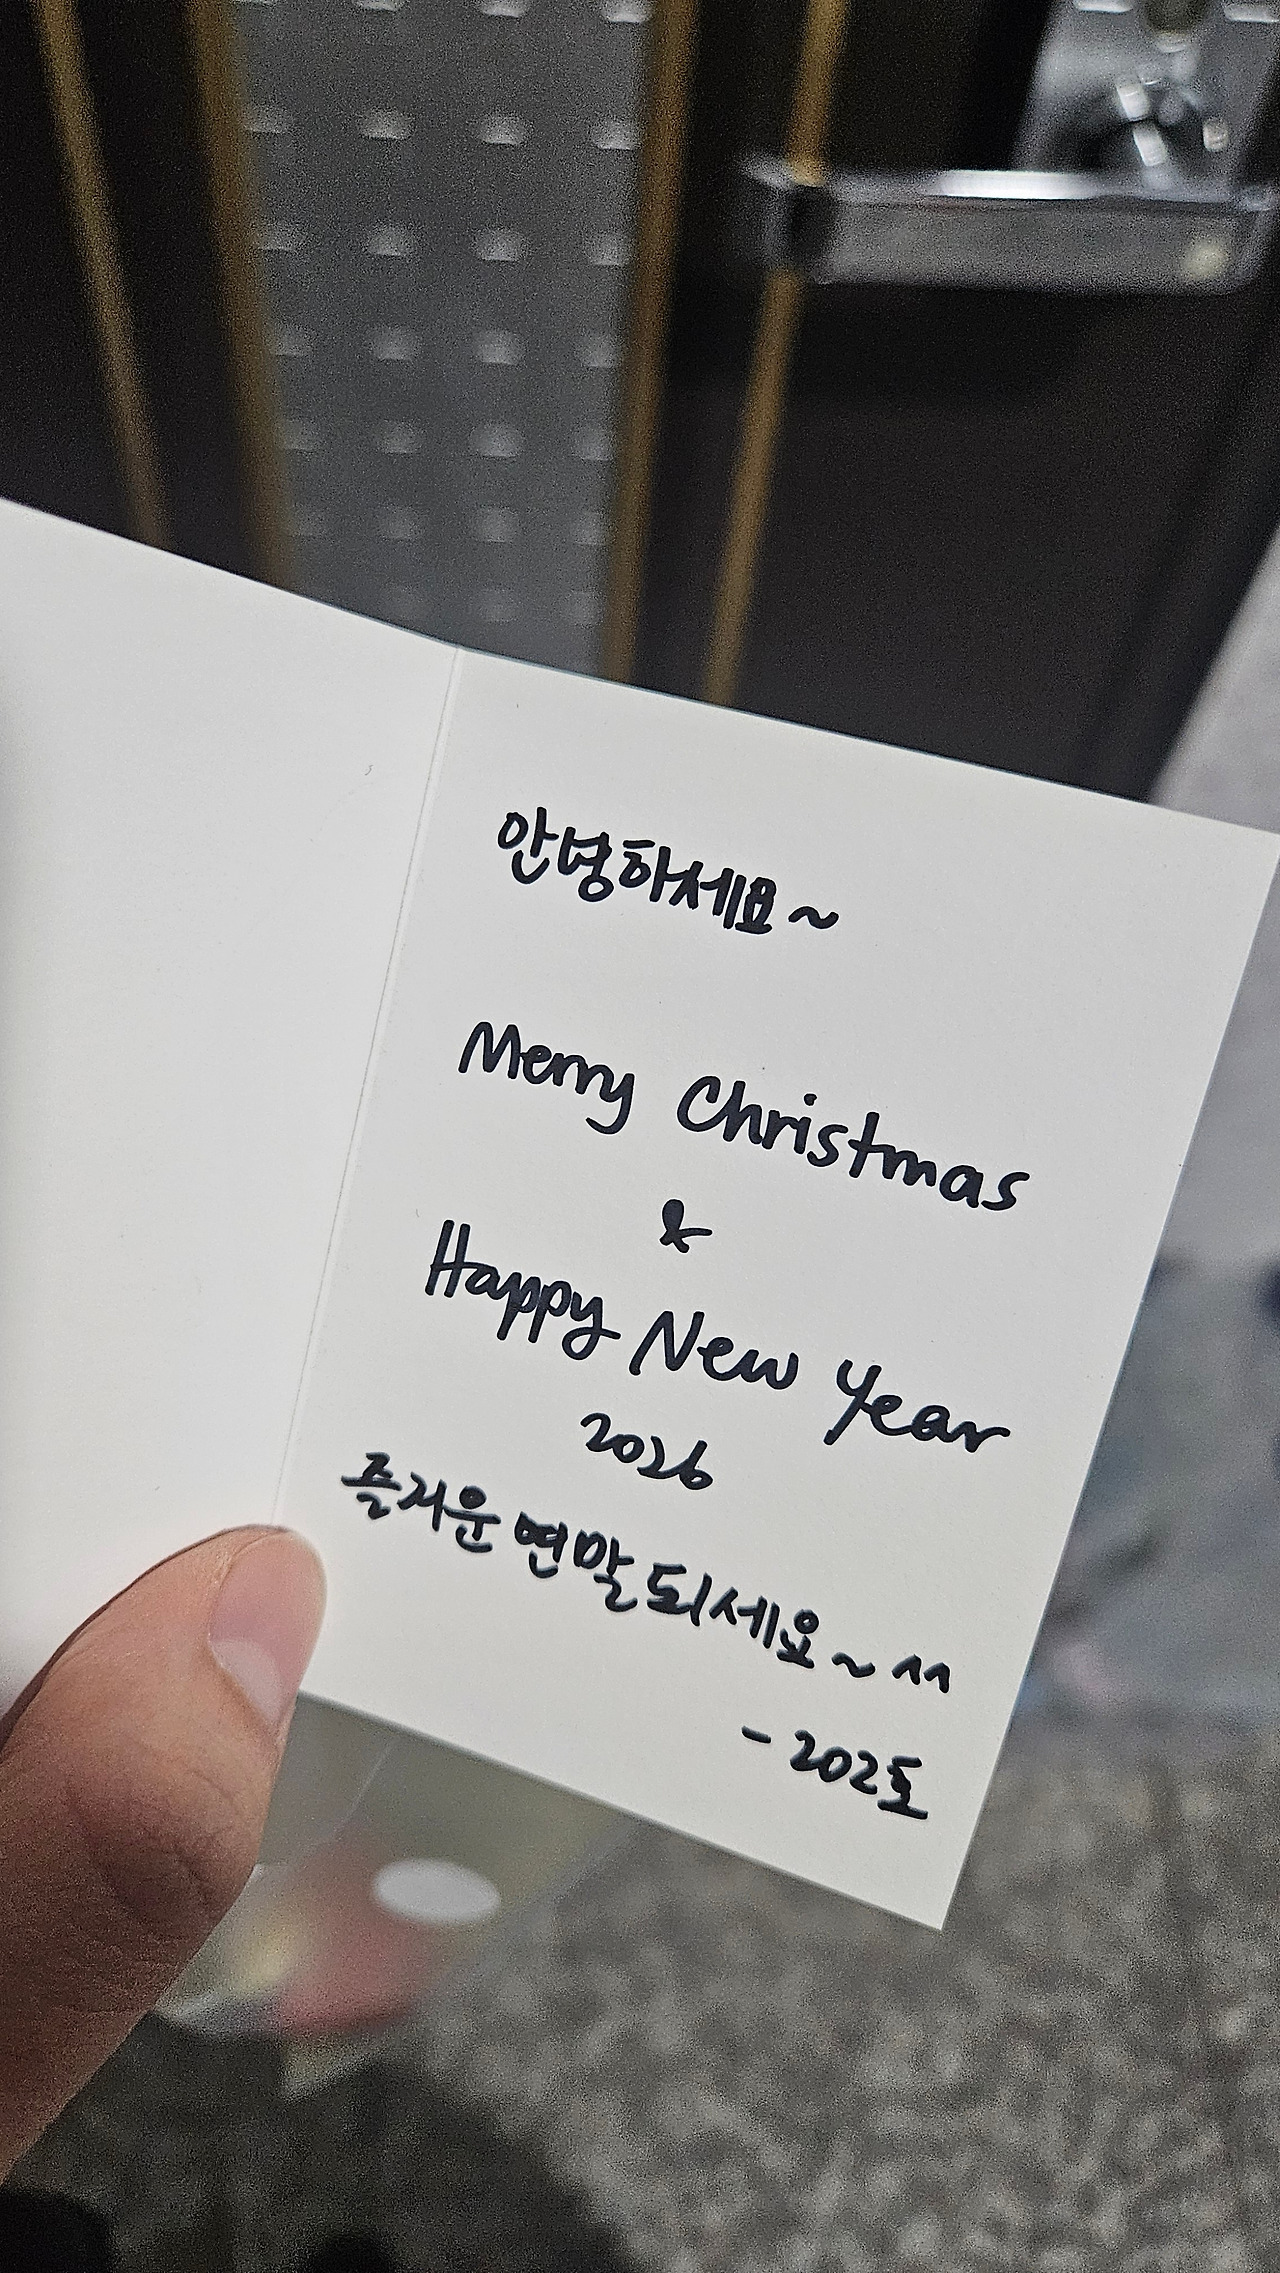 안녕하세요~
Merry Christmas
&
Happy New Year
2026
즐거운 연말 되세요~ ^^
- 202호